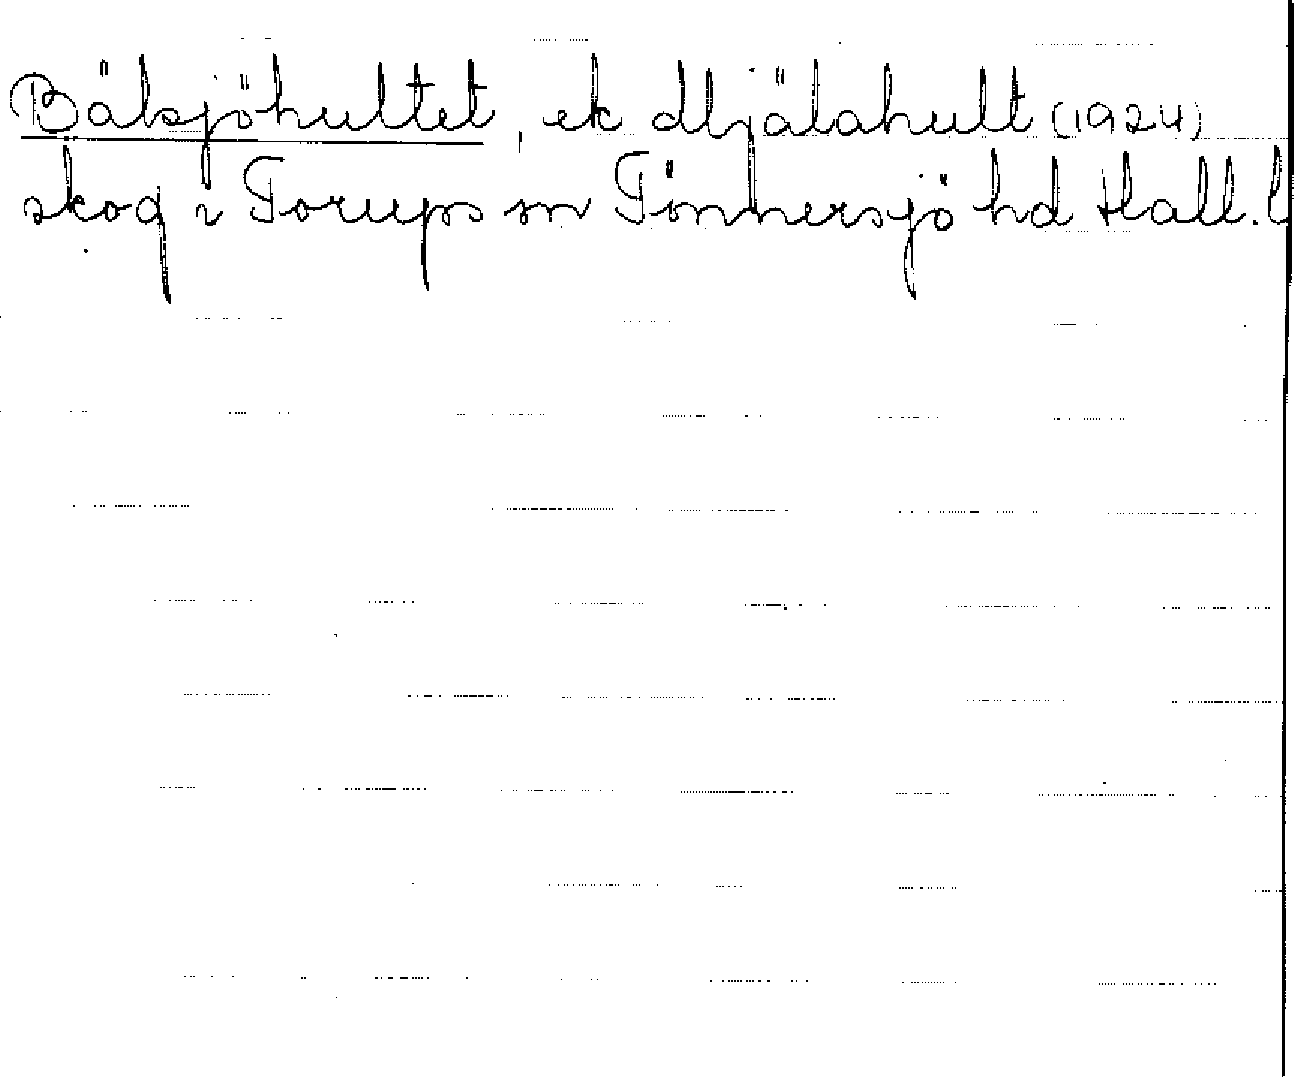 Bälsjöhultet, ek Mjälahult (1924)
skog i Torups sn Tönnersjö hd Hall. l